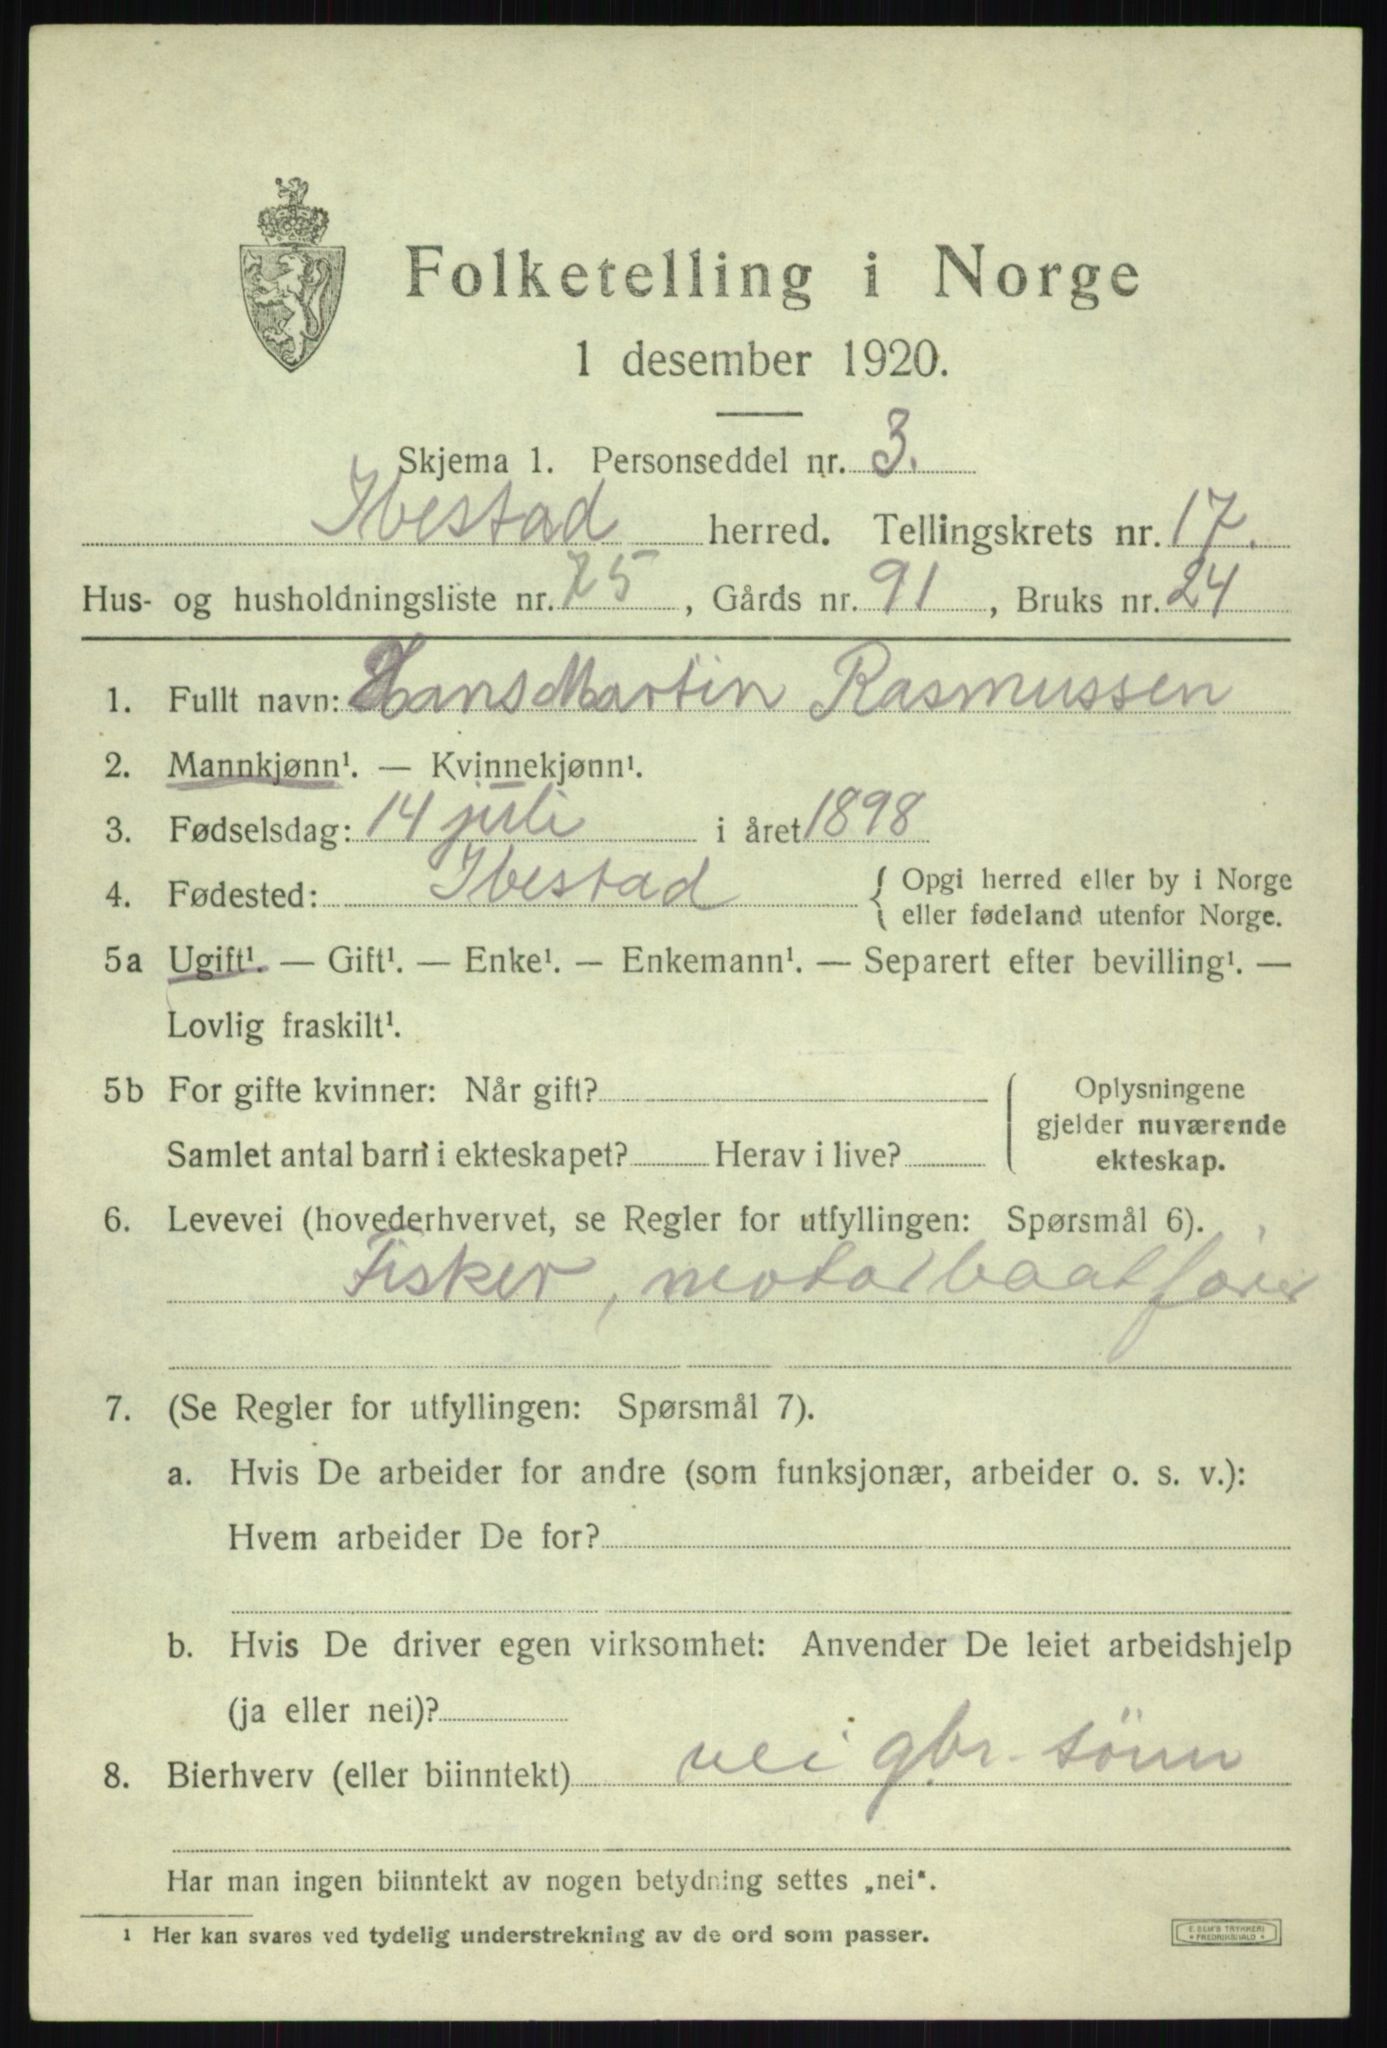 Folketelling i Norge
1 desember 1920.
Skjema 1. Personseddel nr. 3.
Ibestad herred. Tellingskrets nr. 17.
Hus- og husholdningsliste nr. 75, Gårds nr. 91, Bruks nr. 24
1. Fullt navn: Hans Martin Rasmussen
2. Mannkjønn¹. — Kvinnekjønn¹.
3. Fødselsdag: 14 juli i året 1898
4. Fødested: Ibestad { Opgi herred eller by i Norge
eller fødeland utenfor Norge.
5a Ugift¹. — Gift¹. — Enke¹. — Enkemann¹. — Separert efter bevilling¹. —
Lovlig fraskilt¹.
5b For gifte kvinner: Når gift?
Samlet antal barn i ekteskapet? Herav i live?
Oplysningene
gjelder nuværende
ekteskap.
6. Levevei (hovederhvervet, se Regler for utfyllingen: Spørsmål 6).
Fisker, motorbaatfører
7. (Se Regler for utfyllingen: Spørsmål 7).
a. Hvis De arbeider for andre (som funksjonær, arbeider o. s. v.):
Hvem arbeider De for?
b. Hvis De driver egen virksomhet: Anvender De leiet arbeidshjelp
(ja eller nei)?
8. Bierhverv (eller biinntekt) nei gbr. sönn
Har man ingen biinntekt av nogen betydning settes „nei“.
¹ Her kan svares ved tydelig understrekning av de ord som passer.
E. SEM'S TRYKKERI
FREDRIKSHALD